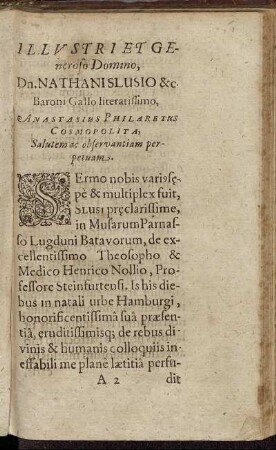 ILLVSTRI ET GE-
neroso Domino,
Dn. NATHANI SLUSIO &c
Baroni Gallo literatissimo,
ANASTASIUS PHILARETUS
COSMOPOLITA,
Salutem ac observantiam per-
petuam.
SErmo nobis vari9 sę-
pè & multiplex fuit,
SLUSI pręclarissime,
in Musarum Parnas-
so Lugduni Batavorum, de ex-
cellentissimo Theosopho &
Medico Henrico Nollio, Pro-
fessore Steinfurtensi. Is his die-
bus in natali urbe Hamburgi,
honorificentissimâ suâ præsen-
tiâ, eruditissimisq; de rebus di-
vinis & humanis colloquiis in-
effabili me planè lætitiâ perfu-
A 2 dit